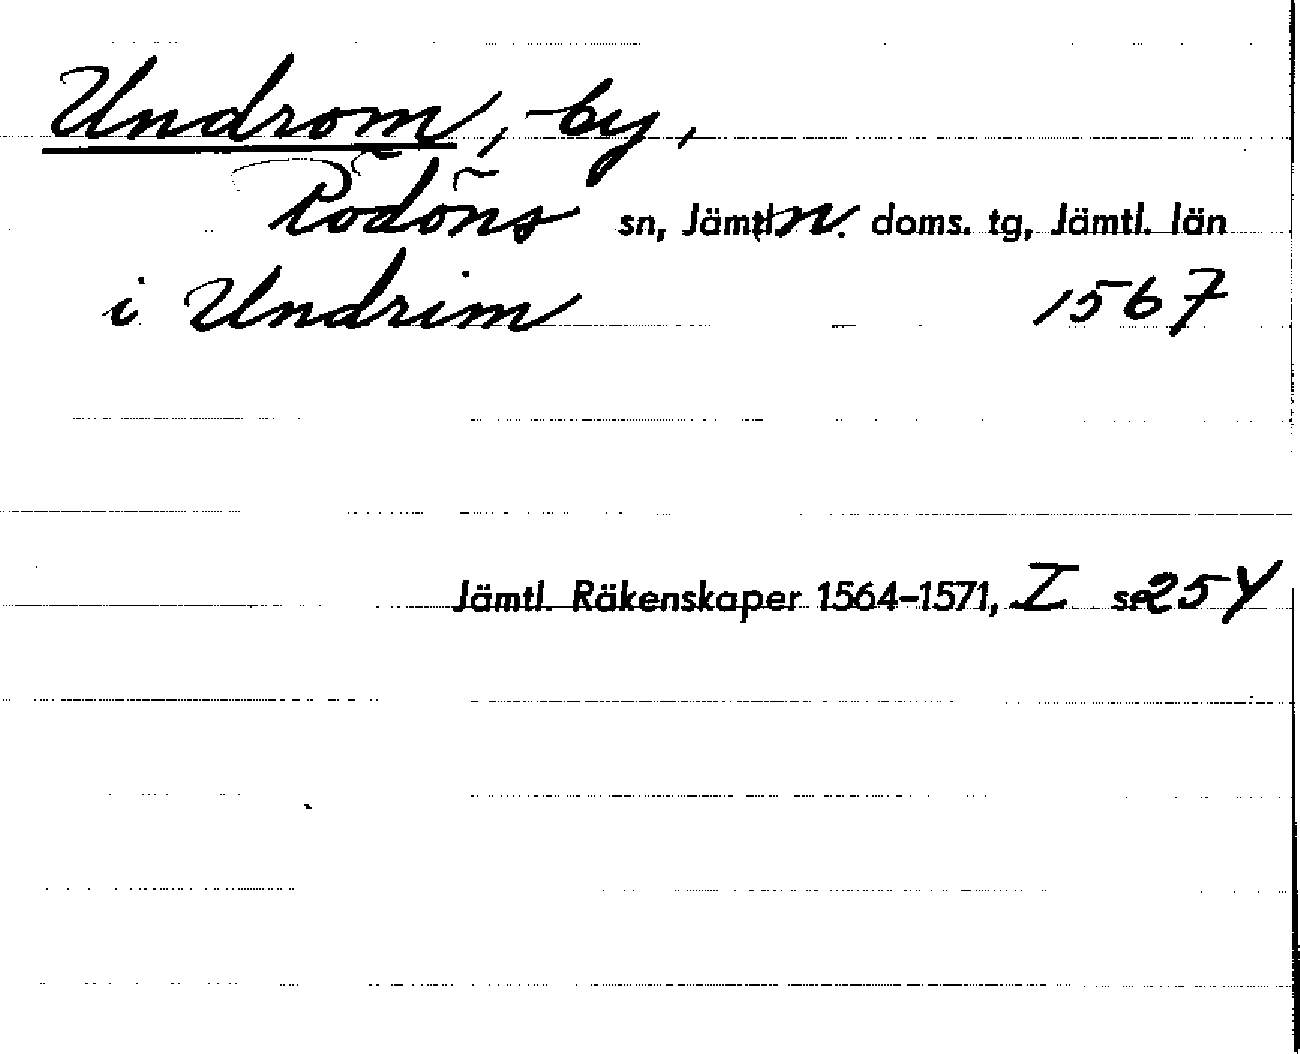 Undrom, by,
Rödöns sn, Jämtl. n. doms. tg, Jämtl. län
i Undrim 1567
Jämtl. Räkenskaper 1564–1571, I s. 254